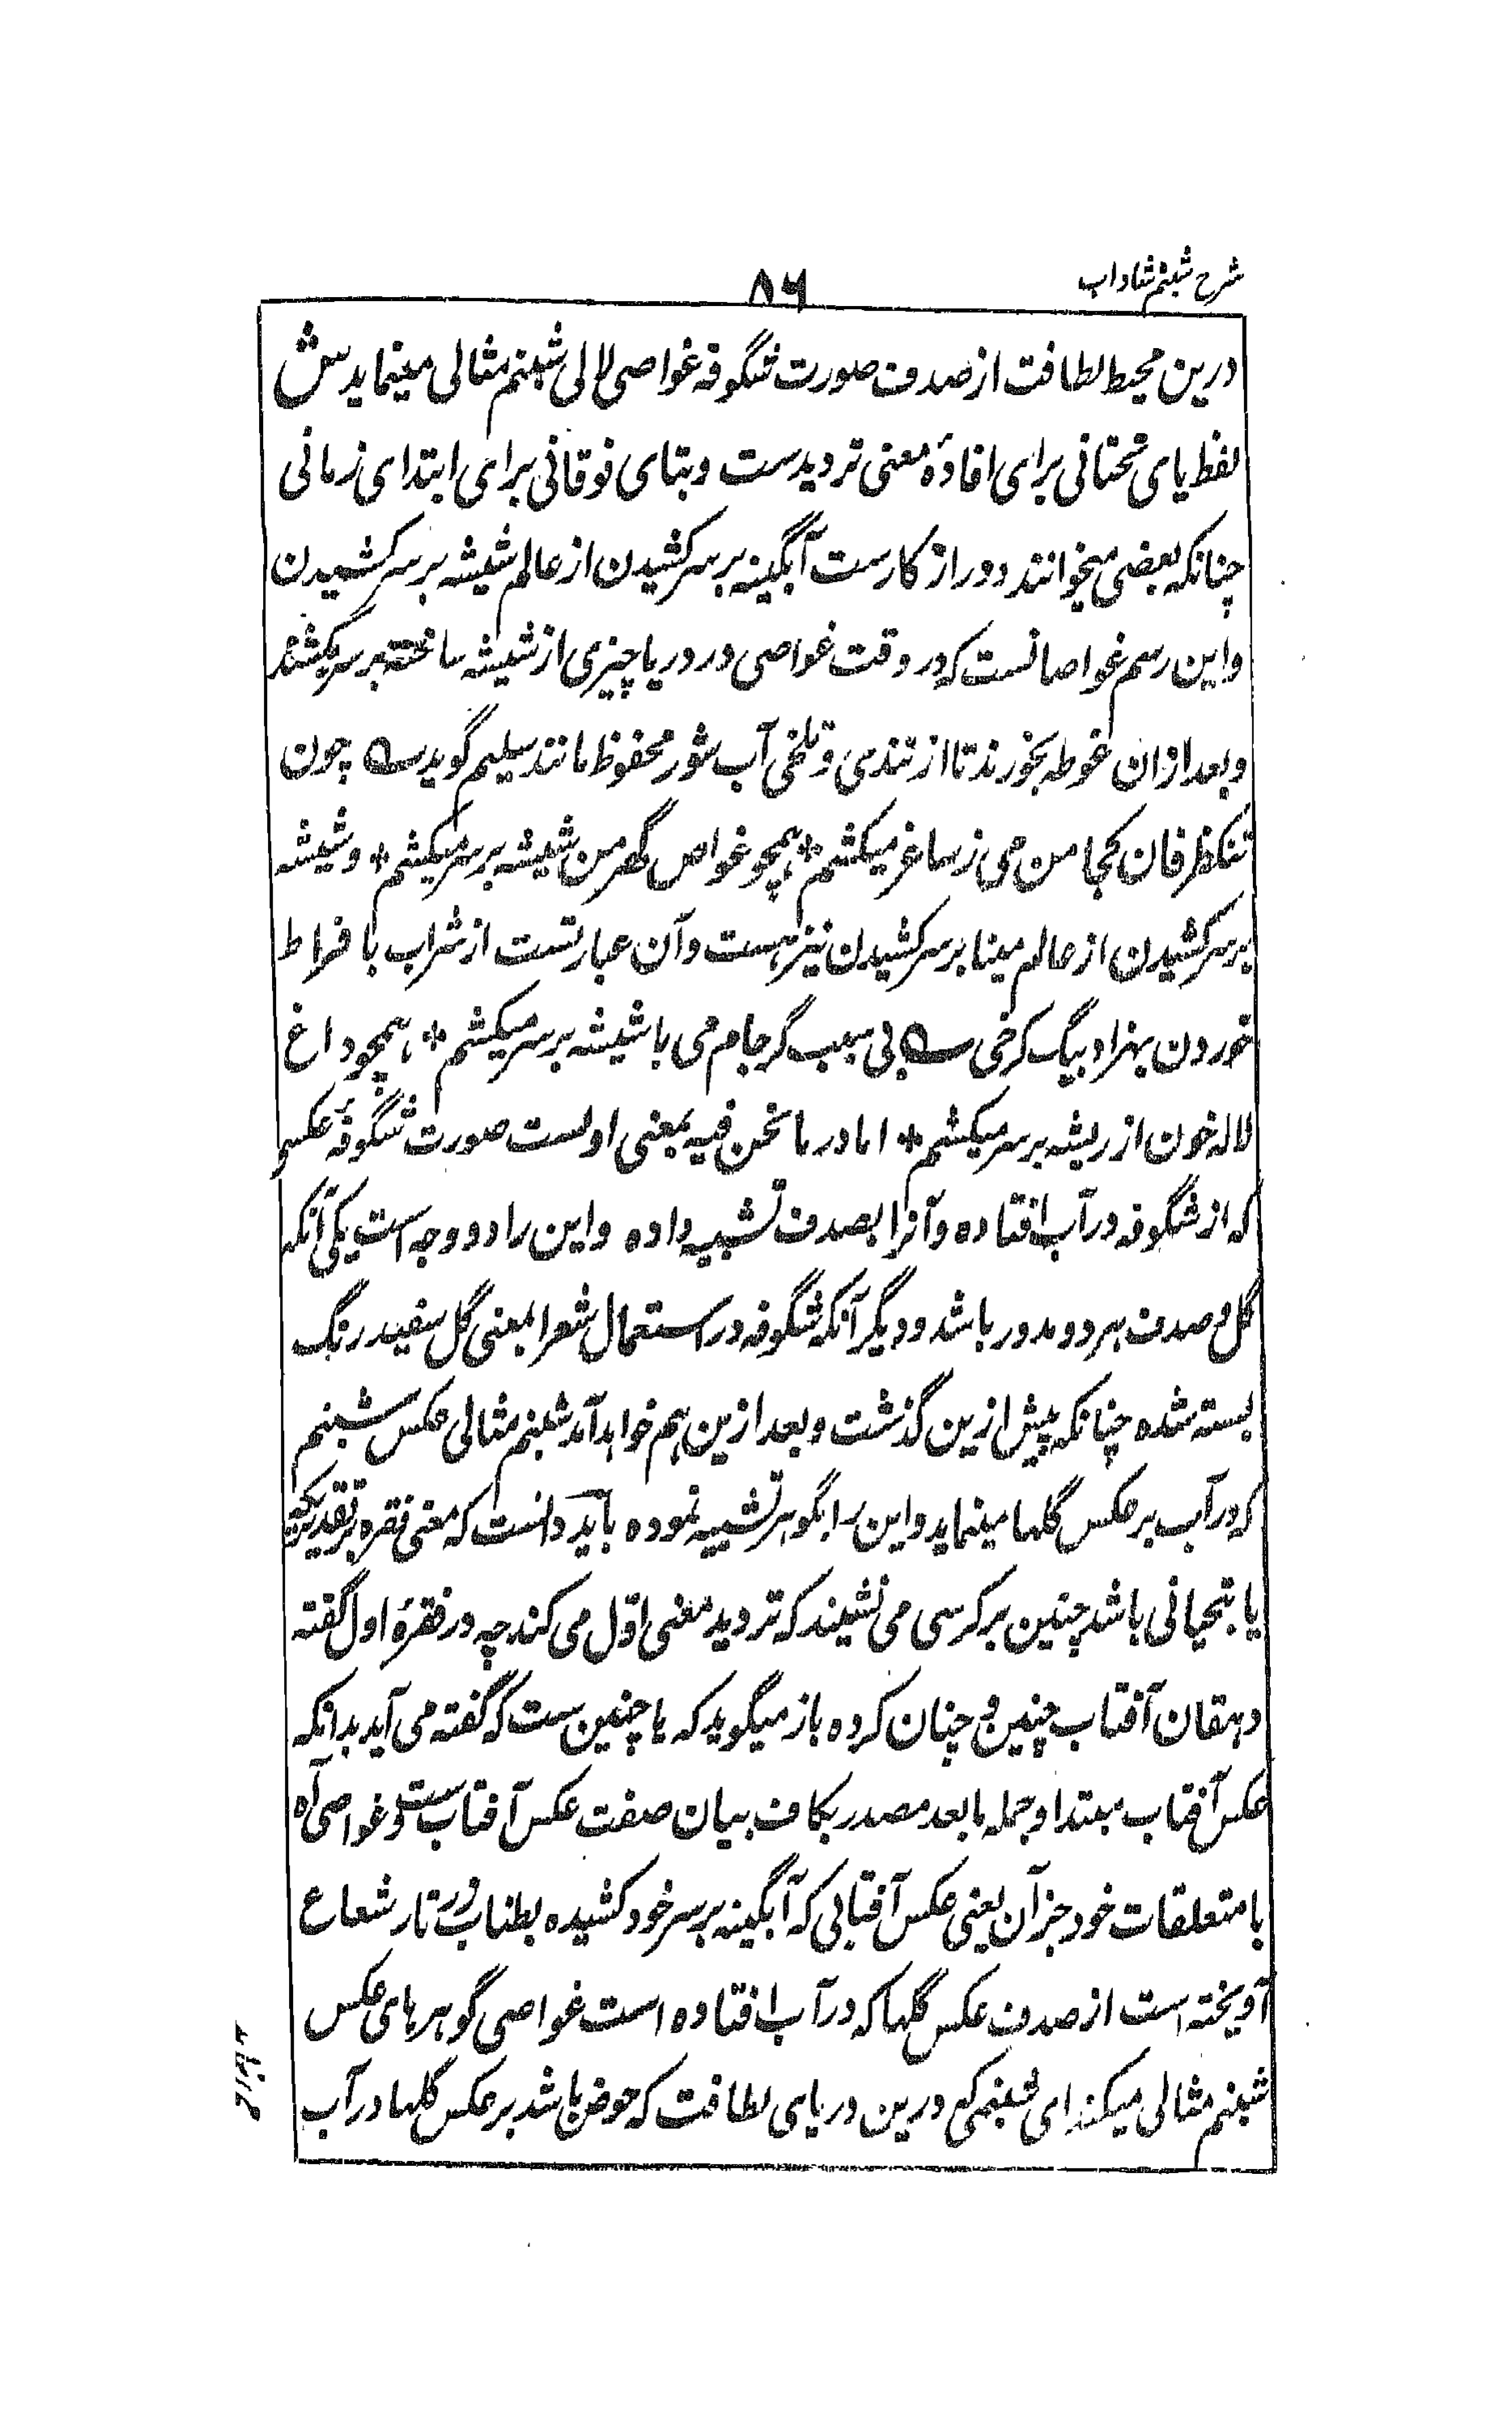 شرح شبنم شاداب
۵۶
درین محیط لطافت از صدف صورت شگوفه غواصی لالی شبنم مثالی مینماید ش
لفظ یای تحتانی برای افادهٔ معنی تردیدست و بتای فوقانی برای ابتدای زمانی
چنانکه بعضی میخوانند دور از کارست آبگینه بر سر کشیدن از عالم شیشه بر سر کشیدن
و این رسم غواصانست که در وقت غواصی در دریا چیزی از شیشه ساخته بر سر میکشند
و بعد ازان غوطه بخورند تا از تندی و تلخی آب شور محفوظ مانند سلیم گوید چون
تنکظرفان کجا من می ز ساغر میکشم * همچو غواص گهر من شیشه بر سر میکشم * و شیشه
بر سر کشیدن از عالم مینا بر سر کشیدن نیز هست و آن عبارتست از شراب با فراط
خوردن بهزاد بیگ کرخی بی سبب گر جام می با شیشه بر سر میکشم * همچو داغ
لاله خون از ریشه بر سر میکشم * اما در ما نحن فیه بمعنی اولست صورت شگوفهٔ عکسی
که از شگوفه در آب افتاده و آنرا بصدف تشبیه داده و این را دو وجه است یکی آنکه
گل و صدف هر دو مدور باشد و دیگر آنکه شگوفه در استعمال شعرا بمعنی گل سفید رنگ
بسته شده چنانکه پیش ازین گذشت و بعد ازین هم خواهد آمد شبنم مثالی عکس شبنم
که در آب بر عکس گلها مینماید و این را بگوهر تشبیه نموده باید دانست که معنی فقره بر تقدیریکه
یا بتحیانی باشد چنین بر کرسی می نشیند که تردید معنی اوّل می کند چه در فقرهٔ اول گفته
دهقان آفتاب چنین و چنان کرده باز میگوید که یا چنین ست که گفته می آید بدانکه
عکس آفتاب مبتدا و جمله ما بعد مصدر بکاف بیان صفت عکس آفتاب ست و غواصی آه
با متعلقات خود جز آن یعنی عکس آفتابی که آبگینه بر سر خود کشیده بطناب زرتار شعاع
آویخته است از صدف عکس گلها که در آب افتاده است غواصی گوهرهای عکس
شبنم مثالی میکند ای شبنمی که درین دریای لطافت که حوض باشد بر عکس گلها در آب